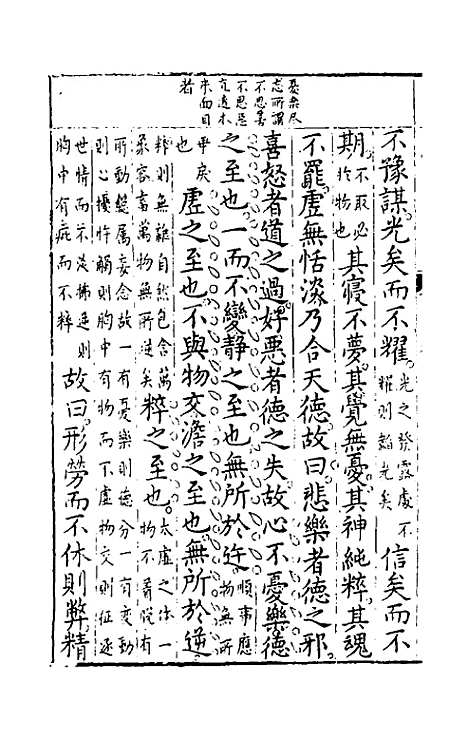 憂樂尽
忘所謂
不思善
不思惡
本
來面目
者
不豫謀光矣而不耀光之發露處不耀則韜光矣信矣而不
期不取必於物也其寢不夢其覺無憂其神純粹其魂
不罷虛無恬淡乃合天德故曰悲樂者德之邪
喜怒者道之過好惡者德之失故心不憂樂德
之至也一而不變靜之至也無所於迕順事應物無所
乖戾也虛之至也不與物交澹之至也無所於逆
粹則無雜自然包含萬象容畜萬物無所逆矣粹之至也太虛之体一物不着有
所動属妄念故一有憂樂則德分一有变動則心擾忤觸則胸中有物而不虛物交則征逐
世情而不淡拂逆則胸中有疵而不粹故曰形勞而不休則弊精